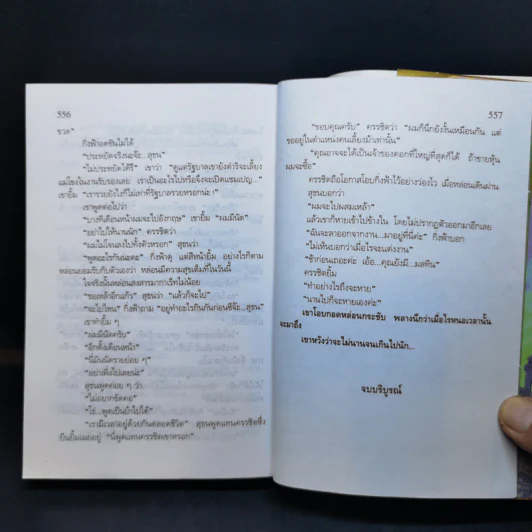 556
ขวด"
กิ่งฟ้าอดขันไม่ได้
"ประหยัดจริงนะจ๊ะ..สุขน"
"ไม่ประหยัดได้รึ" เขาว่า "ดูแต่รัฐบาลเขายังดำริจะเลี้ยง
แม่โขงในงานรับรองเลย เราเป็นอะไรไปหรือจึงจะเปิดแชมเปญ..."
เขายิ้ม "เรารวยยังไงก็ไม่เท่าที่รัฐบาลรวยหรอกน่ะ!"
เขาพูดต่อไปว่า
"บางทีเดือนหน้าผมจะไปอังกฤษ" เขายิ้ม "ผมมีนัด"
"อย่าไปให้นานนัก" ครรชิตว่า
"ผมไม่โจนลงไปทั้งตัวหรอก" สุขนว่า
"พูดอะไรกันน่ะคะ" กิ่งฟ้าดุ แต่สีหน้ายิ้ม อย่างไรก็ตาม
หล่อนยอมรับกับตัวเองว่า หล่อนมีความสุขเต็มที่ในวันนี้
ใจจริงนั้นหล่อนสงสารมาการ์เรทไม่น้อย
"ขอเหล้าอีกแก้ว" สุขนว่า.. "แล้วก็จะไป"
"จะไปไหน" กิ่งฟ้าถาม "อยู่ทำอะไรกินกันก่อนซีจ๊ะ...สุขน"
เขาทำยิ้ม ๆ
"ผมมีนัดครับ"
"อีกตั้งเดือนหนึ่ง"
"นี่มันนัดรายย่อย ๆ"
"อย่าเพิ่งไปเลยน่ะ"
สุขนพูดค่อย ๆ ว่า
"ไม่อยากขัดคอ"
"โธ่...พูดเป็นบ้าไปได้"
"เรามีเวลาอยู่ด้วยกันตลอดชีวิต" สุขนพูดแทนครรชิตซึ่ง
ยืนยิ้มแฉ่งอยู่ "นี่พูดแทนครรชิตเขาหรอก"
557
"ขอบคุณครับ" ครรชิตว่า "ผมก็นึกยังงั้นเหมือนกัน แต่
ขออยู่ในตำแหน่งคนเลี้ยงม้าเท่านั้น"
"คุณอาจจะได้เป็นเจ้าของคอกที่ใหญ่ที่สุดก็ได้ ถ้าขายหุ้น
ผมจะซื้อ"
ครรชิตถือโอกาสโอบกิ่งฟ้าไว้อย่างว่องไว เมื่อหล่อนเดินผ่าน
สุขนบอกว่า
"ผมจะไปผสมเหล้า"
แล้วเขาก็หายเข้าไปข้างใน โดยไม่ปรากฏตัวออกมาอีกเลย
"ฉันจะลาออกจากงาน...มาอยู่ที่นี่ค่ะ" กิ่งฟ้าบอก
"ไม่เห็นบอกว่าเมื่อไรจะแต่งงาน"
"ช้าก่อนเถอะค่ะ เอ้อ...คุณยังมี...มลทิน"
ครรชิตยิ้ม
"ทำอย่างไรถึงจะหาย"
"นานไปก็จะหายเองค่ะ"
เขาโอบกอดหล่อนกระชับ พลางนึกว่าเมื่อไรหนอเวลานั้น
จะมาถึง
เขาหวังว่าจะไม่นานจนเกินไปนัก...
จบบริบูรณ์